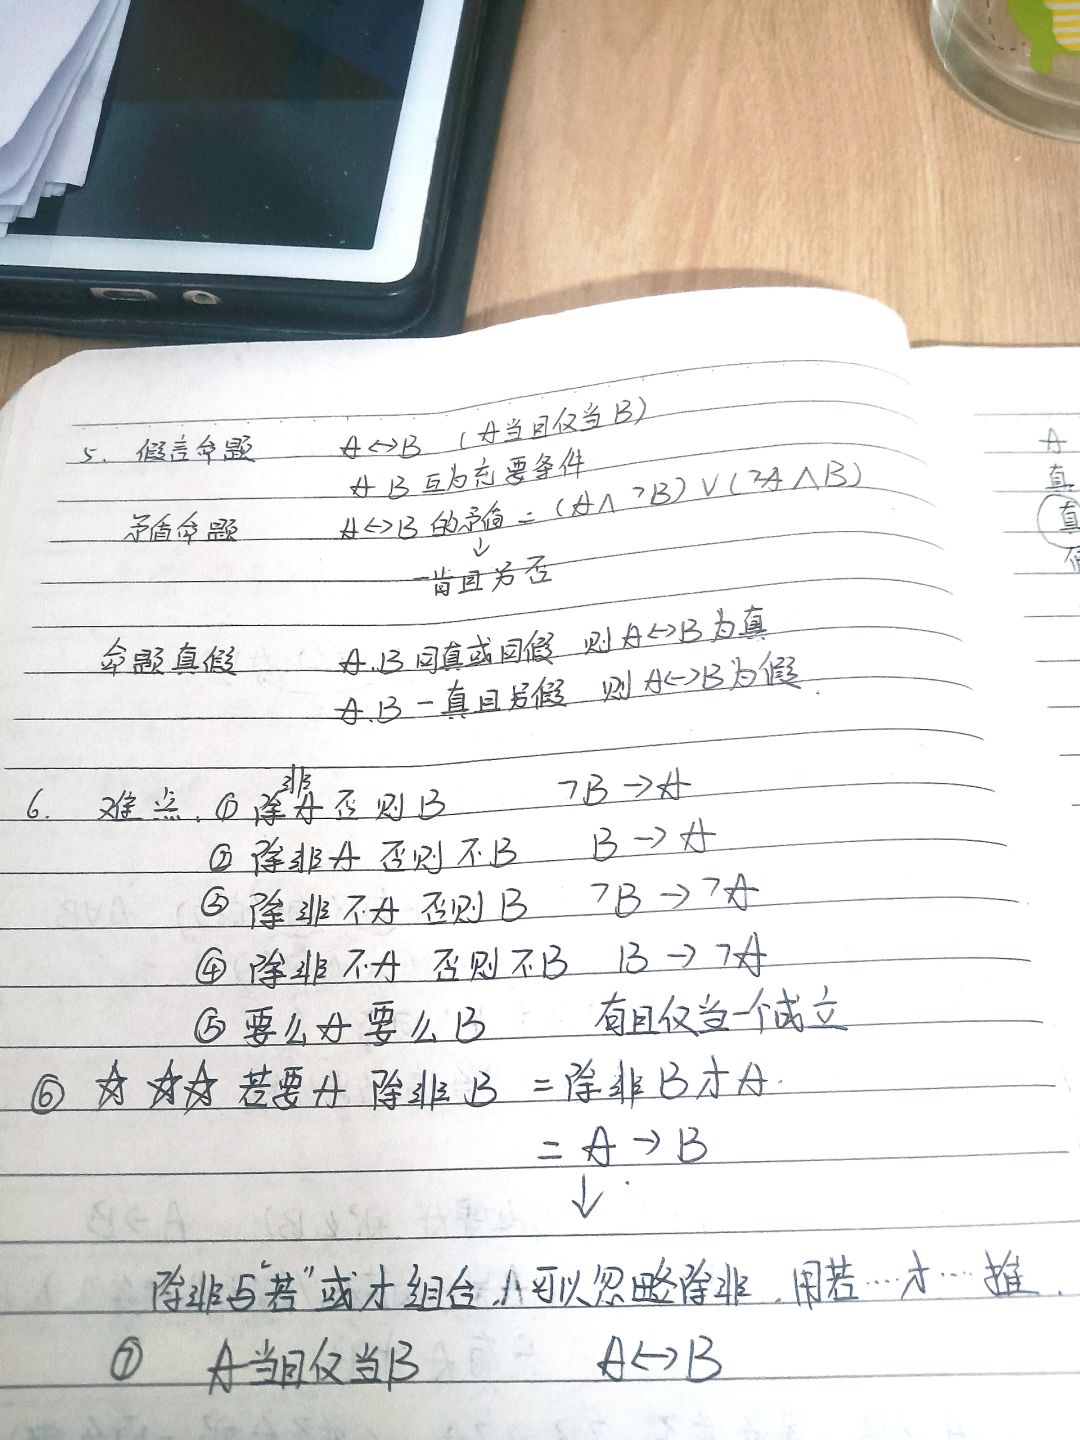 5. 假言命题 A↔B (A当且仅当B)
A B 互为充要条件
矛盾命题 A↔B 的矛盾 = (A∧¬B)∨(¬A∧B)
↓
一肯且另否
命题真假 A.B 同真或同假 则A↔B为真
A.B 一真且另假 则A↔B为假.
6. 难点. ① 除非A否则B ¬B→A
② 除非A 否则不B B→A
③ 除非不A 否则B ¬B→¬A
④ 除非不A 否则不B B→¬A
⑤ 要么A要么B 有且仅当一个成立
⑥ ☆ ☆☆ 若要A 除非B = 除非B才A.
= A→B
↓
除非与"若"或才组合.可以忽略除非.用若……才…推.
⑦ A当且仅当B A↔B
A
真
真